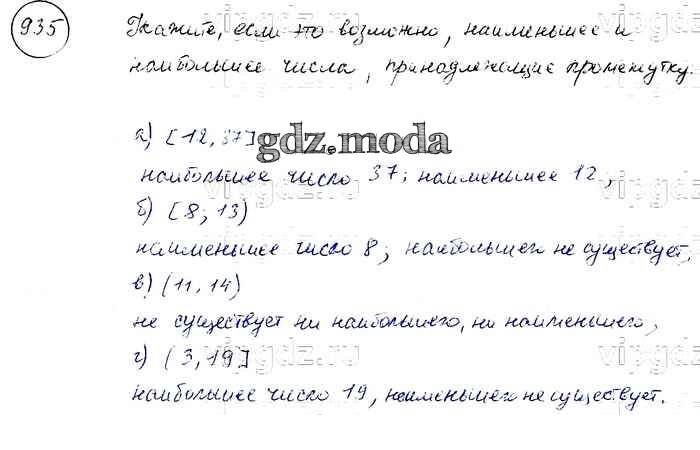 935
Укажите, если это возможно, наименьшее и
наибольшее числа, принадлежащие промежутку.
а) [12, 37]
gdz.moda
наибольшее число 37; наименьшее 12,
vipgdz.ru
б) [8; 13)
наименьшее число 8; наибольшего не существует,
в) (11, 14)
не существует ни наибольшего, ни наименьшего,
г) (3, 19]
vipgdz.ru
наибольшее число 19, наименьшего не существует.